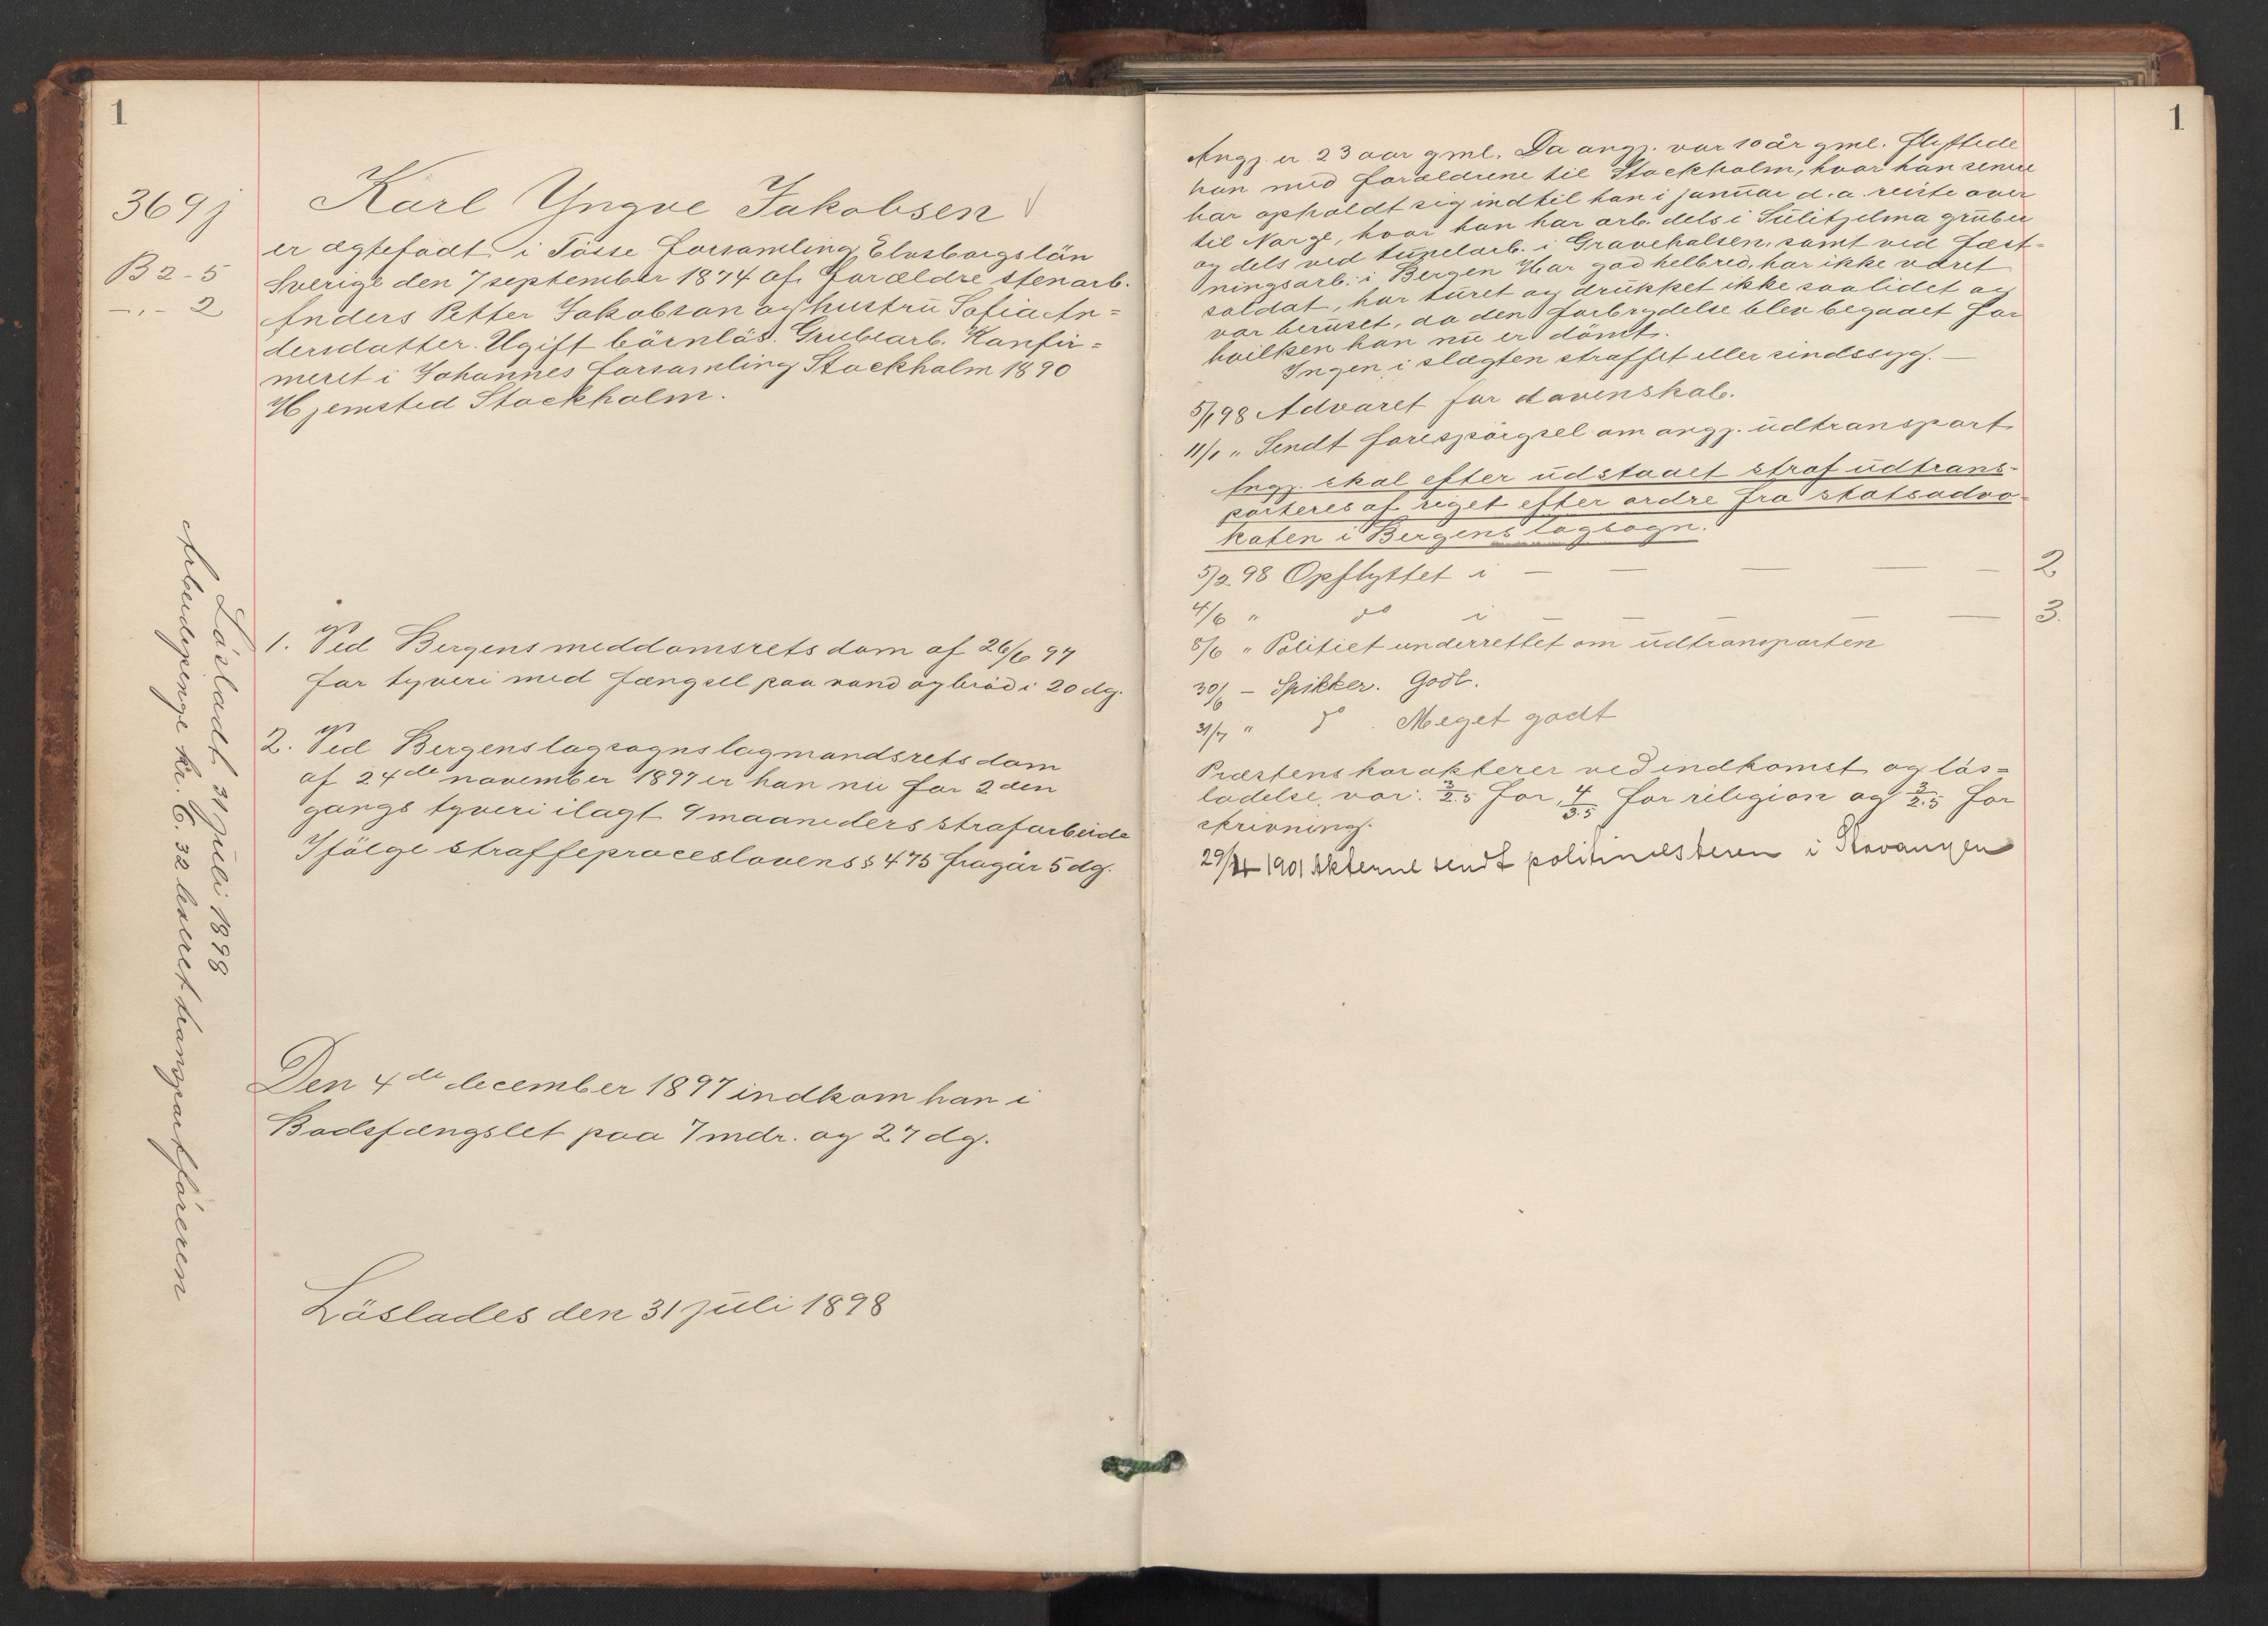 1
369j
B 2-5
-„- 2
Karl Yngve Jakobsen
er ægtefödt i Tösse forsamling Elvsborgslän
Sverige den 7 september 1874 af forældre stenarb.
Anders Petter Jakobson og hustru Sofia An=
dersdatter. Ugift barnlös. Grubearb. Konfir=
meret i Johannes forsamling Stockholm 1890
Hjemsted Stockholm.
1. Ved Bergens meddomsrets dom af 26/6 97
for tyveri med fængsel paa vand og bröd i 20 dg.
2. Ved Bergens lagsogns lagmandsrets dom
af 24de november 1897 er han nu for 2den
gangs tyveri ilagt 9 maaneders strafarbeide
Ifölge straffeproceslovens § 475 fragår 5 dg.
Den 4de december 1897 indkom han i
Bodsfængslet paa 7 mdr. og 27 dg.
Löslades den 31 juli 1898
Lösladt 31 juli 1898
Arbeidspenge kr. 6.32 leveret transportföreren
1
Angj. er 23 aar gml. Da angj. var 10 år gml. flyttede
han med forældrene til Stockholm, hvor han senere
har opholdt sig indtil han i januar d.a. reiste over
til Norge, hvor han har arb. dels i Sulitjelma gruber
og dels ved tunelarb. i Gravehalsen, samt ved fæst-
ningsarb. i Bergen Har god helbred, har ikke været
soldat, har turet og drukket ikke saa lidet og
var beruset, da den forbrydelse blev begaaet for
hvilken han nu er dömt.
Ingen i slægten straffet eller sindssyg. —
5/1 98 Advaret for dovenskab.
11/1 „ Sendt forespörgsel om angj. udtransport
Angj. skal efter udstaaet straf udtrans-
porteres af riget efter ordre fra statsadvo-
katen i Bergens lagsogn.
5/2 98 Opflyttet i — — — — — 2
4/6 „ do i — — — — 3.
8/6 „ Politiet underrettet om udtransporten
30/6 — Spikker. Godt.
31/7 „ do. Meget godt
Præstens karakterer ved indkomst og lös=
ladelse var: 3/2.5 for, 4/3.5 for religion og 3/2.5 for
skrivning.
1901 Akterne sendt politimesteren i Stavanger